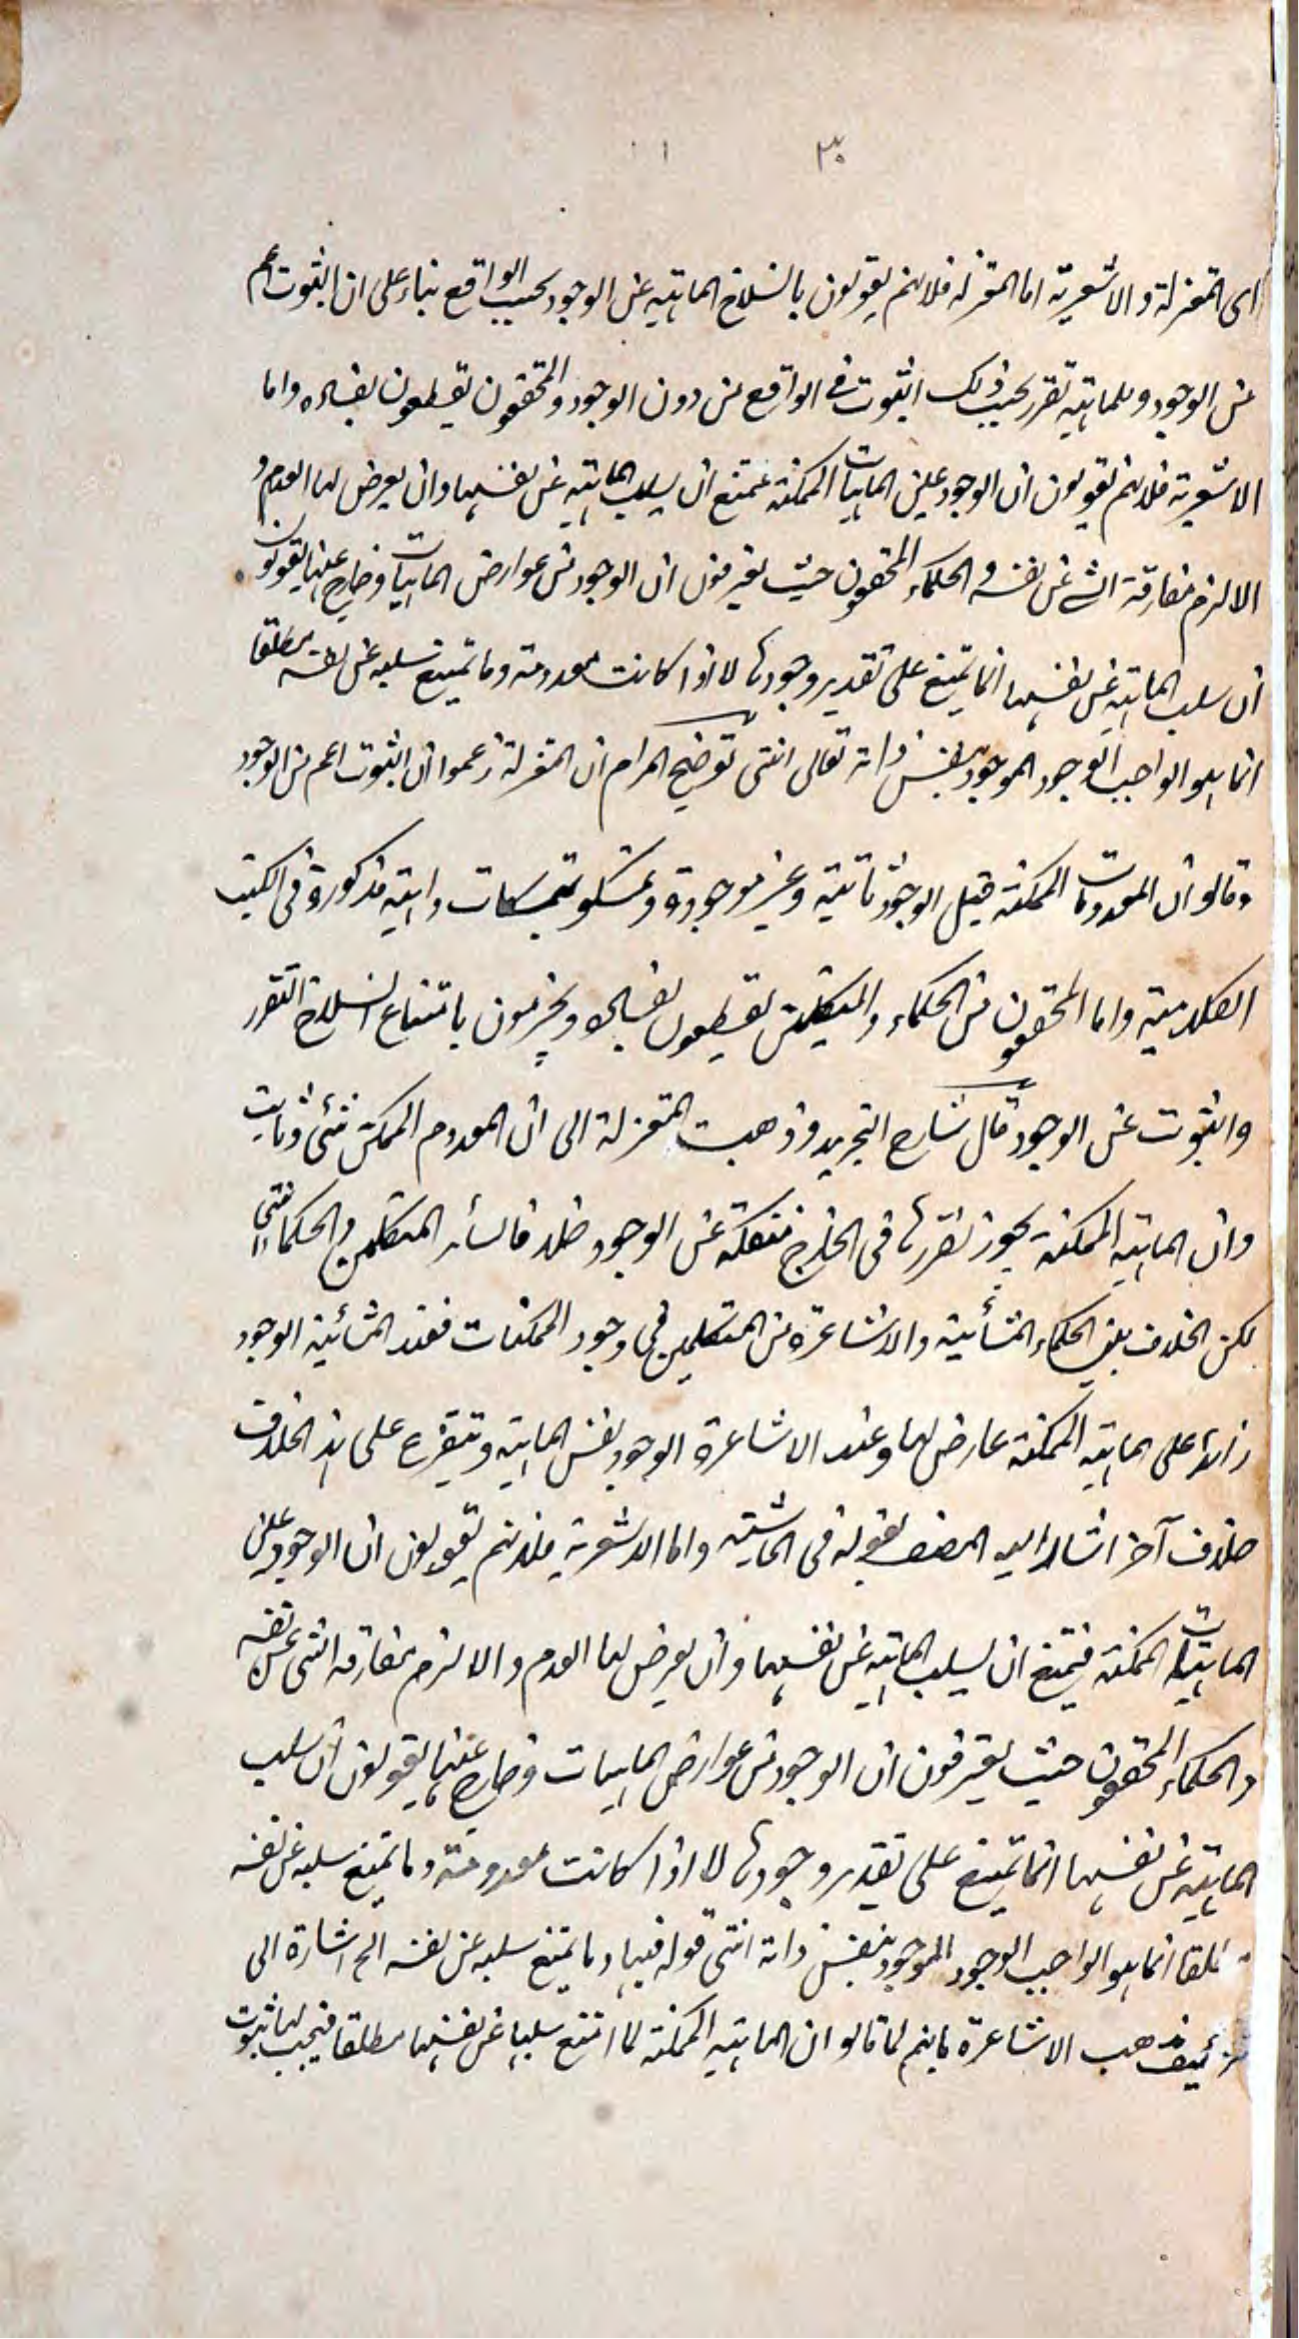 ٣٠ ١
اى المعتزلة والاشعرية اما المعتزلة فلانهم يقولون بانسلاخ الماهية عن الوجود بحسب الواقع بناء على ان الثبوت اعم
من الوجود وللماهية تقرر بحسب ذلك الثبوت فى الواقع من دون الوجود والمحققون يقطعون بفساده واما
الاشعرية فلانهم يقولون ان الوجود عين الماهيات الممكنة فيمتنع ان يسلب الماهية عن نفسها وان يعرض لها العدم و
الا لزم مفارقة الشئ عن نفسه والحكماء المحققون حيث يعترفون ان الوجود من عوارض الماهيات وخارج عنها يقولون
ان سلب الماهية عن نفسها انما يمتنع على تقدير وجودها لا اذا كانت معدومة وما يمتنع سلبه عن نفسه مطلقا
انما هو الواجب الوجود الموجود بنفس ذاته تعالى انتهى توضيح المرام ان المعتزلة زعموا ان الثبوت اعم من الوجود
وقالو ان المعدومات الممكنة قبل الوجود ثابتية وغير موجودة وتمسكو بتمسكات واهية مذكورة فى الكتب
الكلامية واما المحققون من الحكماء والمتكلمين يقطعون بفساده ويجزمون بامتناع انسلاخ التقرر
والثبوت عن الوجود قال شارح التجريد وذهبت المعتزلة الى ان المعدوم الممكن شئ وثابت
وان الماهية الممكنة يجوز تقررها فى الخارج منفكة عن الوجود خلافا لسائر المتكلمين والحكماء انتهى
لكن الخلاف بين الحكماء المشائية والاشاعرة من المتكلمين فى وجود الممكنات فعند المشائية الوجود
زائد على ماهية الممكنة عارض لها وعند الاشاعرة الوجود نفس الماهية ويتفرع على هذا الخلاف
خلاف آخر اشار اليه المصنف بقوله فى الحاشية واما الاشعرية فلانهم يقولون ان الوجود عين
الماهيات الممكنة فيمتنع ان يسلب الماهية عن نفسها وان يعرض لها العدم والا لزم مفارقة الشئ عن نفسه
والحكماء المحققون حيث يعترفون ان الوجود من عوارض الماهيات وخارج عنها يقولون ان سلب
الماهية عن نفسها انما يمتنع على تقدير وجودها لا اذا كانت معدومة وما يمتنع سلبه عن نفسه
مطلقا انما هو الواجب الوجود الموجود بنفس ذاته انتهى قوله فيها وما يمتنع سلبه عن نفسه الخ اشارة الى
تزئيف مذهب الاشاعرة بانهم لما قالو ان الماهية الممكنة لما امتنع سلبها عن نفسها مطلقا فيجب لها ثبوت